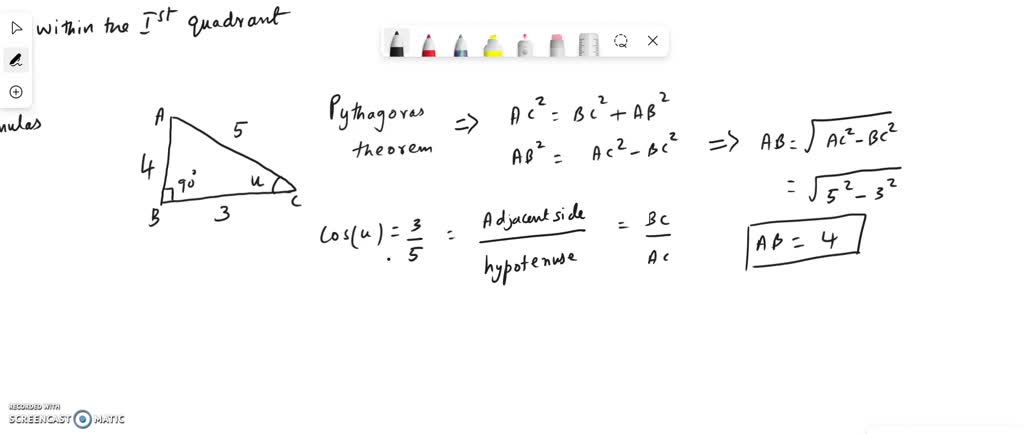 within the Iˢᵗ quadrant
mulas
A
5
4
90°
u
B
3
C
Pythagoras
theorem
=> AC² = BC² + AB²
AB² = AC² - BC² => AB = √AC² - BC²
= √5² - 3²
AB = 4
Cos(u) = 3/5 = Adjacent side/hypotenuse = BC/AC
RECORDED WITH
SCREENCAST MATIC